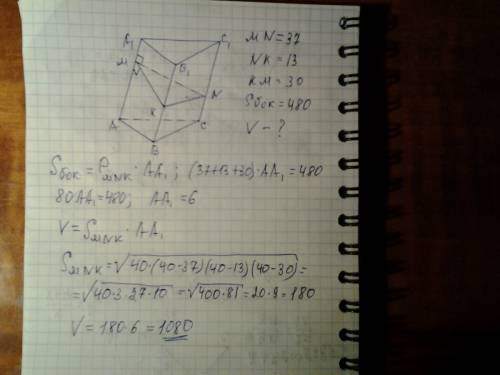 A₁ C₁ MN=37
M B₁ NK=13
N KM=30
K Sбок=480
A C V-?
B
Sбок = P_MNK · AA₁ ; (37+13+30)·AA₁ = 480
80·AA₁=480; AA₁ = 6
V = S_MNK · AA₁
S_MNK = √40·(40-37)(40-13)(40-30) =
= √40·3·27·10 = √400·81 = 20·9 = 180
V = 180·6 = 1080